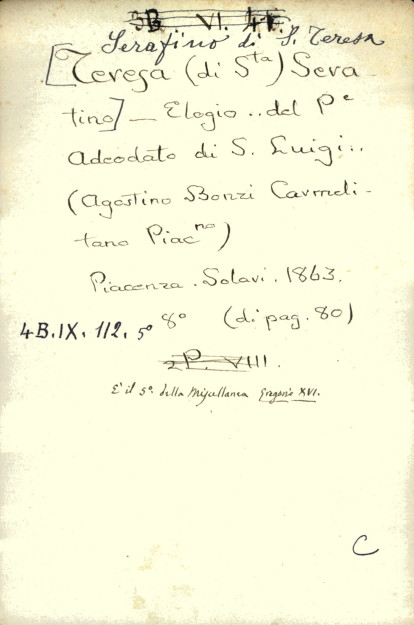 3B VI. 41.
Serafino di S. Teresa
[Teresa (di Sta) Sera-
fino] — Elogio .. del Pe
Adeodato di S. Luigi..
(Agostino Bonzi Carmeli-
tano Piacno)
Piacenza. Solari. 1863.
8° (di pag. 80)
4B.IX. 112. 5°
2P. VIII.
E' il 5°. della Miscellanea Gregorio XVI.
C